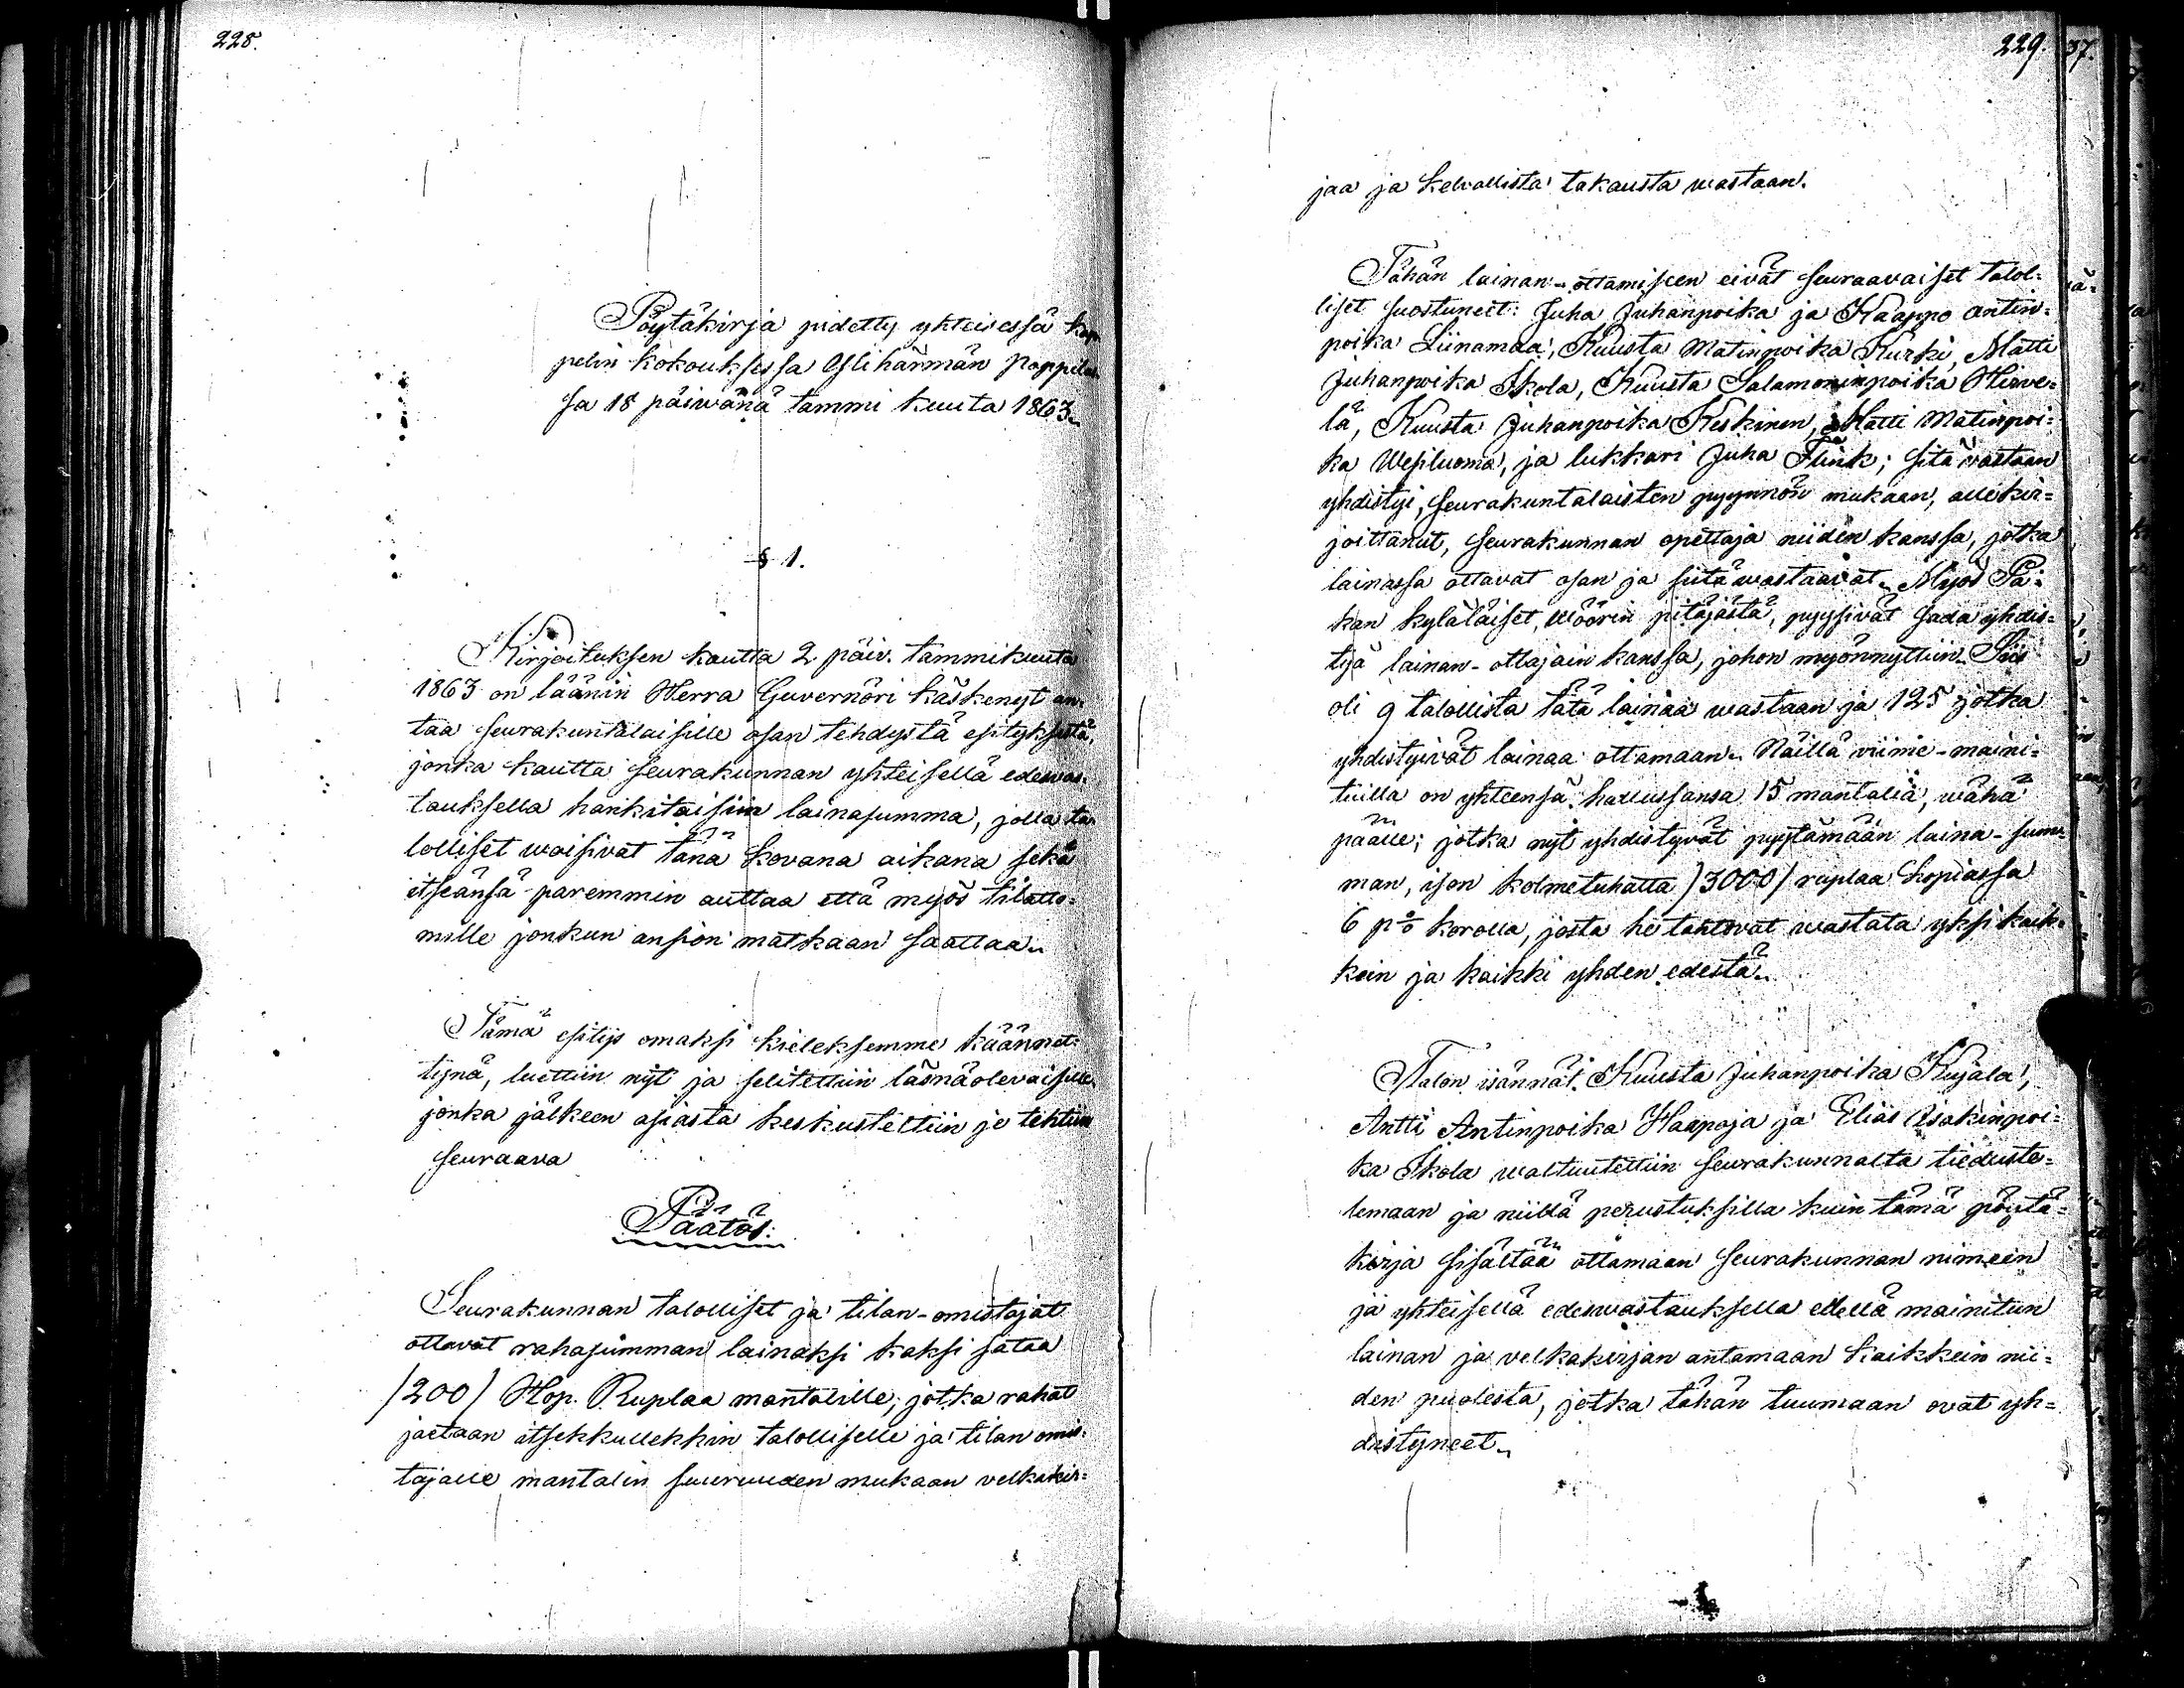 228.
Pöytäkirja pidetty yhteisessä kap
pelin kokouksessa Ylihärmän Pappilas
sa 18 päiwänä tammi kuuta 1863.
§ 1.
Kirjoituksen kautta 2 päiv. tammikuuta
1863 on läänin Herra Guvernöri käskenyt an-
taa seurakuntalaisille osan tehdystä esityksestä,
jonka kautta seurakunnan yhteisellä edeswas-
tauksella hankitaisiin lainasumma, jolla ta-
lolliset woisivat tänä kovana aikana sekä
itseänsä paremmin auttaa että myös tilatto-
mille jonkun ansion matkaan saattaa.
Tämä esitys omaksi kieleksemme käännet-
tynä, luettiin nyt ja selitettiin läsnäolevaisille
jonka jälkeen asiasta keskusteltiin ja tehtiin
seuraava
Päätös:
Seurakunnan talolliset ja tilan-omistajat
ottavat rahasumman lainaksi kaksi sataa
/200/ Hop. Ruplaa mantalille; jotka rahat
jaetaan itsekkullekkin talolliselle ja tilan omis-
tajalle mantalin suuruuden mukaan velkakir=
229.
37.
jaa ja kelvollista takausta wastaan.
Tähän lainan-ottamiseen eivät seuraavaiset talol=
liset suostuneet: Juha Juhanpoika ja Kaappo antin=
poika Liinamaa, Kuusta Matinpoika Kurki, Matti
Juhanpoika Skola, Kuusta Salamoninpoika Hirve=
lä, Kuusta Juhanpoika Keskinen, Matti Matinpoi=
ka Wesiluoma, ja lukkari Juha Flink; sitä wastaan
yhdistyi, seurakuntalaisten pyynnön mukaan, allekir=
joittanut, seurakunnan opettaja niiden kanssa, jotka
lainassa ottavat osan ja siitä wastaavat. Myös Pa=
kan kyläläiset, Wöörin pitäjästä, pyysivät saada yhdis=
tyä lainan-ottajain kanssa, johon myönnyttiin. Siis
oli 9 talollista tätä lainaa wastaan ja 125 jotka
yhdistyivät lainaa ottamaan. Näillä viime-maini=
tuilla on yhteensä hallussansa 15 mantalia, wähä
päälle; jotka nyt yhdistyvät pyytämään laina-sum=
man, ison kolmetuhatta /3000/ ruplaa hopiassa
6 p% korolla, josta he tahtovat wastata yksi kaik=
kein ja kaikki yhden edestä.
Talon isännät Kuusta Juhanpoika Kujala,
Antti Antinpoika Haapoja ja Elias Isakinpoi=
ka Skola waltuutettiin seurakunnalta tieduste=
lemaan ja niillä perustuksilla kuin tämä pöytä=
kirja sisältää ottamaan seurakunnan nimeen
ja yhteisellä edeswastauksella edellä mainitun
lainan ja velkakirjan antamaan kaikkein nii=
den puolesta, jotka tähän tuumaan ovat yh=
distyneet.